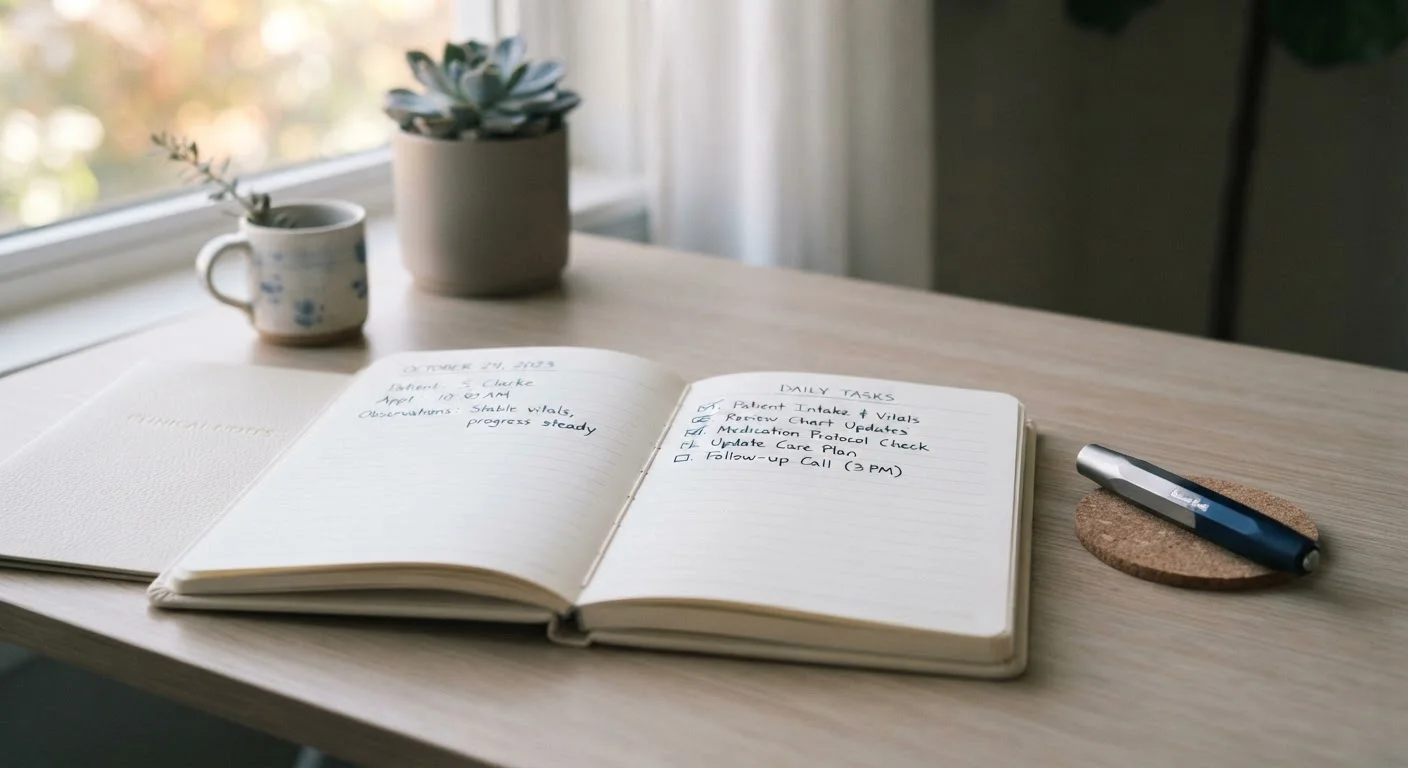 CLINICAL NOTES
OCTOBER 24, 2023
Patient: S. Clarke
Appt: AM
Observations: Stable vitals,
progress steady
DAILY TASKS
Patient Intake & Vitals
Review Chart Updates
Medication Protocol Check
Update Care Plan
Follow-up Call (3 PM)